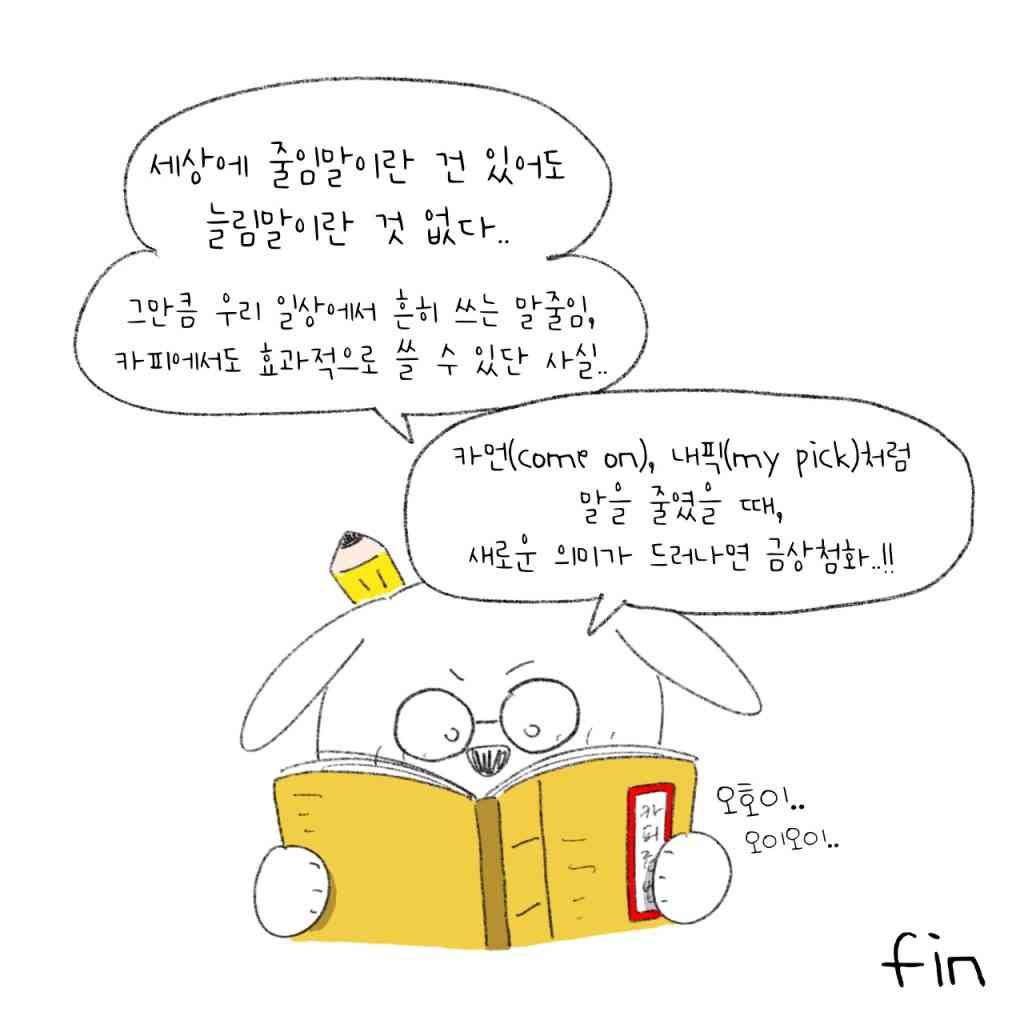 세상에 줄임말이란 건 있어도
늘림말이란 것 없다..
그만큼 우리 일상에서 흔히 쓰는 말줄임,
카피에서도 효과적으로 쓸 수 있단 사실..
카먼(come on), 내픽(my pick)처럼
말을 줄였을 때,
새로운 의미가 드러나면 금상첨화..!!
오호이..
오이오이..
fin